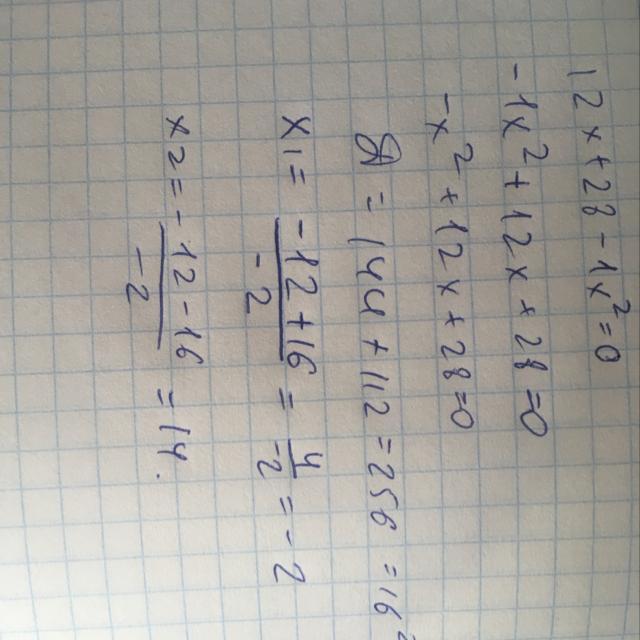 12x+28-1x²=0
-1x²+12x+28=0
-x²+12x+28=0
D=144+112=256=16²
x1=(-12+16)/-2=4/-2=-2
x2=(-12-16)/-2=14.